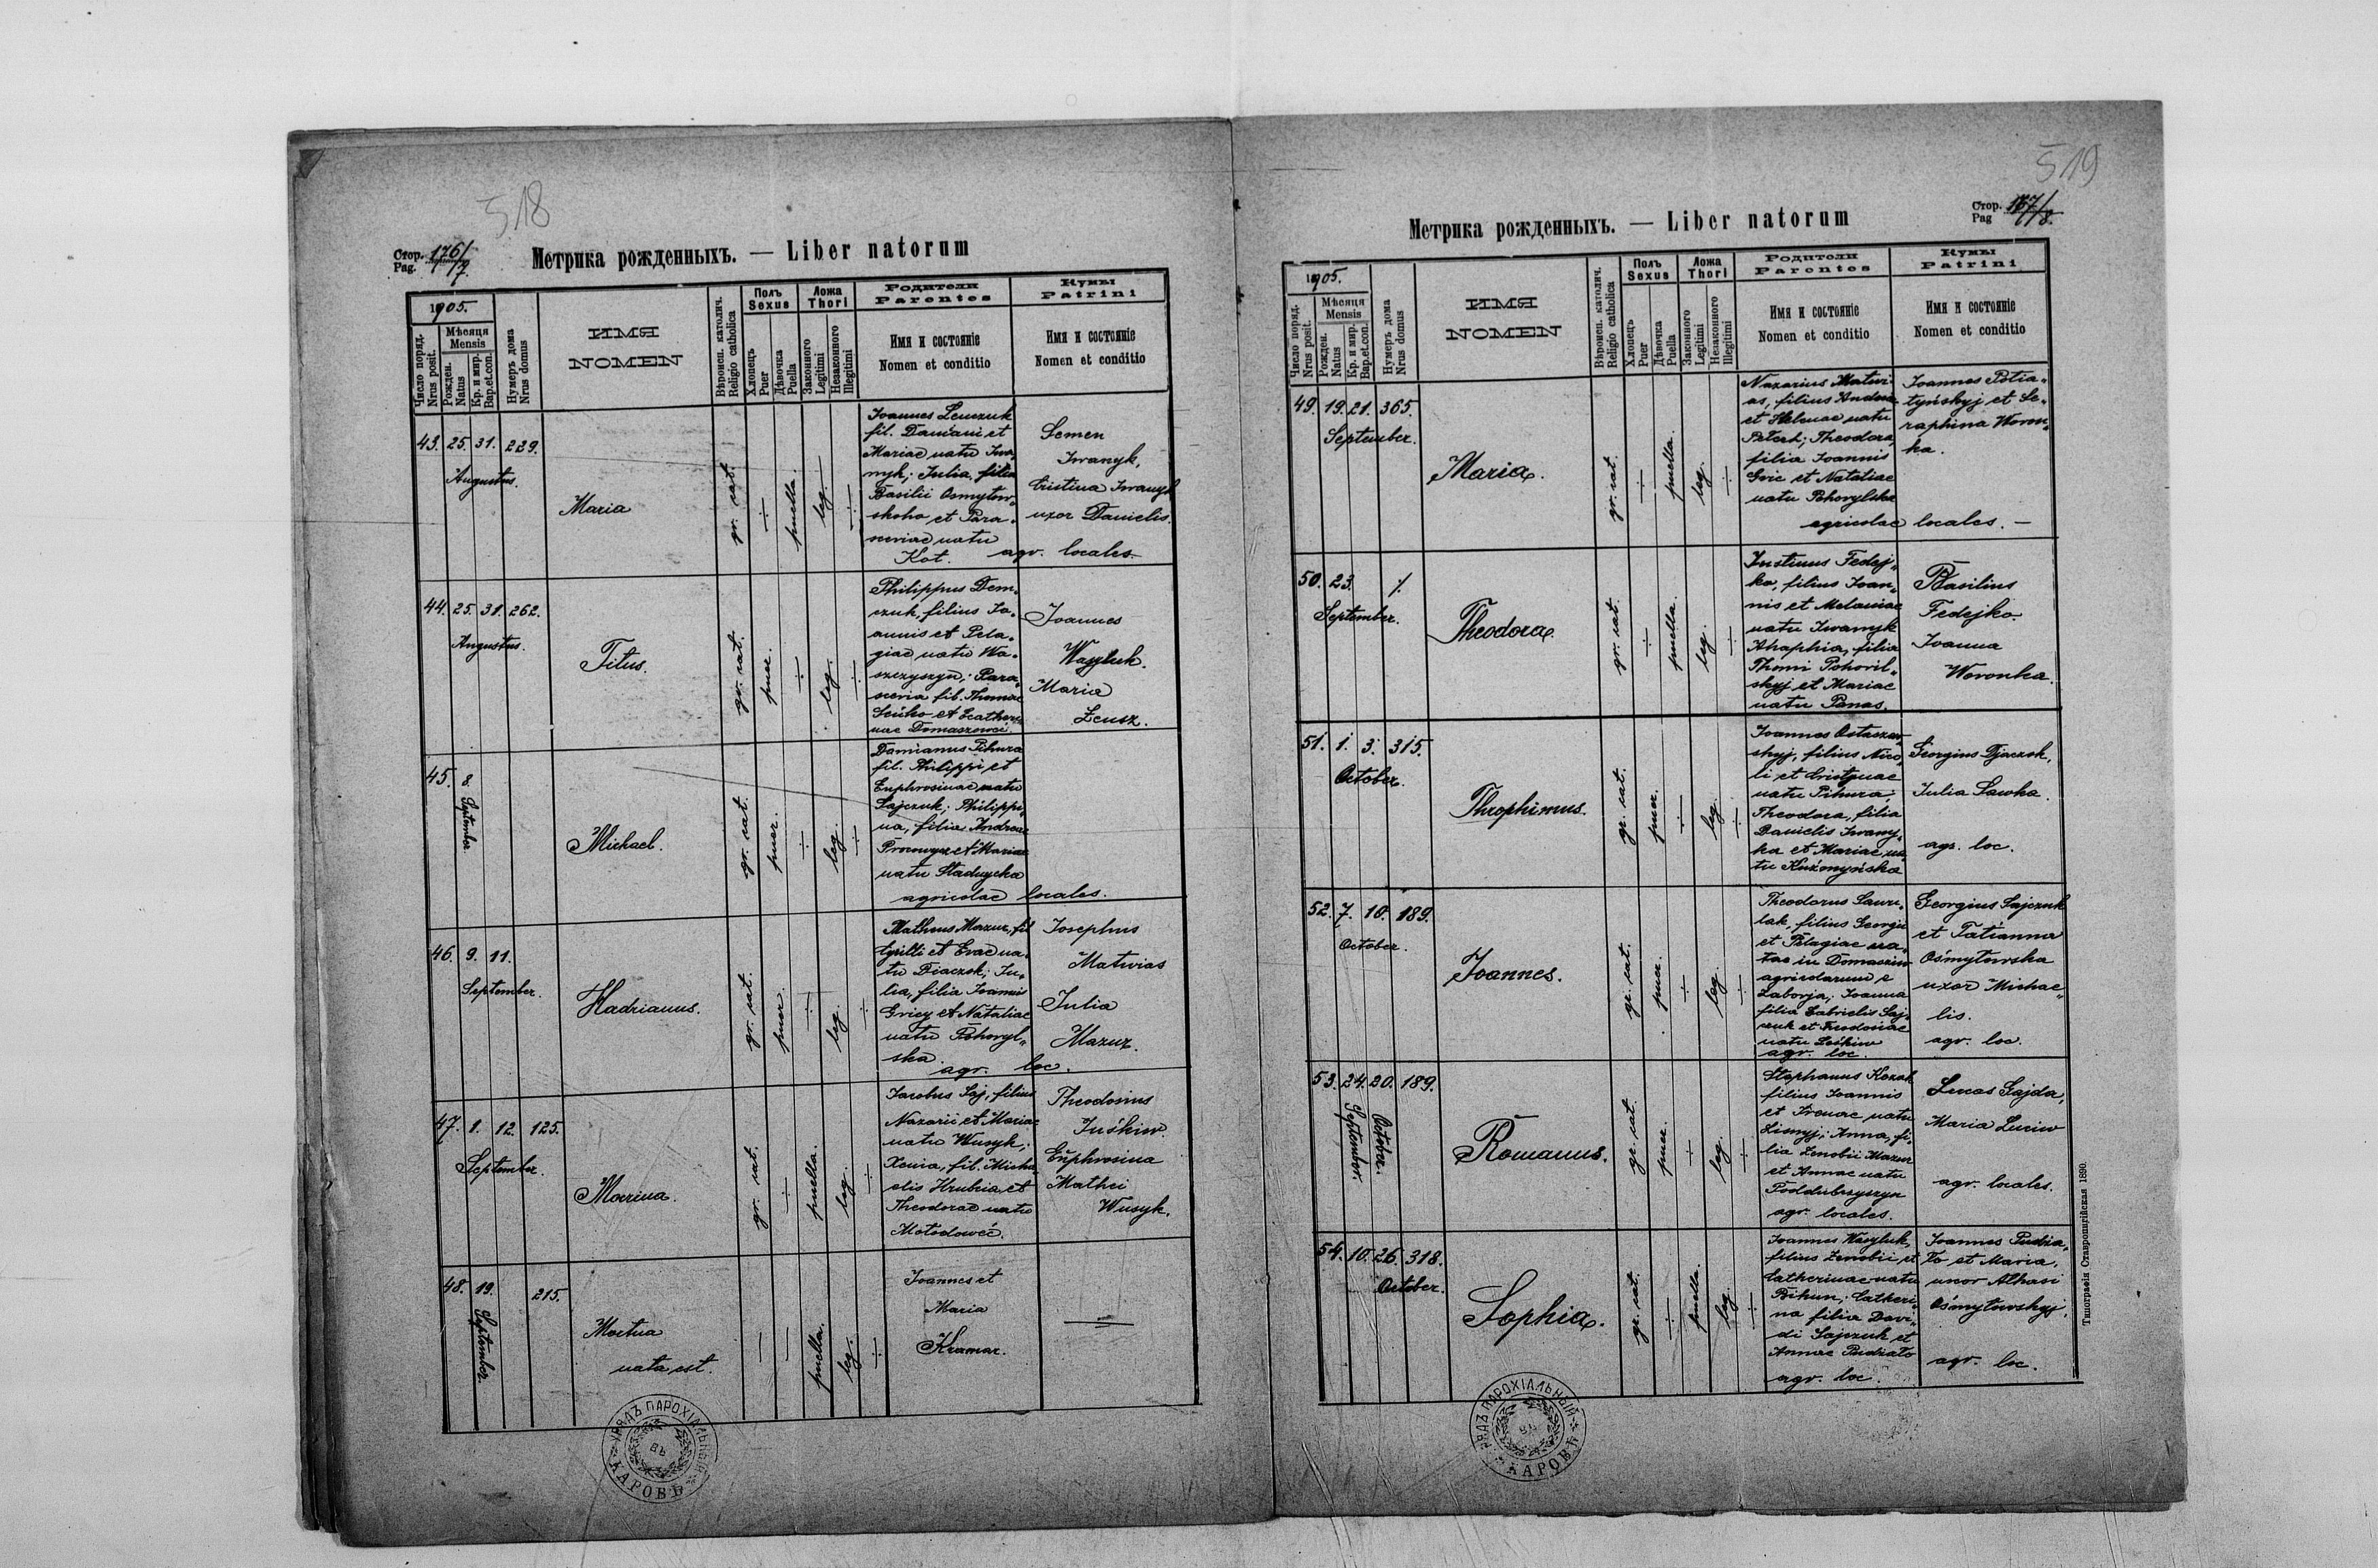 518
Стор. 176/
Pag. 7
Метрика рожденныхъ. — Liber natorum
1905.
Число поряд.
Nrus posit.
Мѣсяця
Mensis
Рожден.
Natus
Кр. и мир.
Bap.et.con.
Нумеръ дома
Nrus domus
ИМЯ
NOMEN
Вѣроисп. католич.
Religio catholica
Полъ
Sexus
Хлопець
Puer
Дѣвочка
Puella
Ложа
Thori
Законного
Legitimi
Незаконного
Illegitimi
Родители
Parentes
Имя и состояніе
Nomen et conditio
Кумы
Patrini
Имя и состояніе
Nomen et conditio
43. 25. 31. 239.
Augustus.
Maria
gr. cat.
puella.
leg.
Joannes Lewczuk
fil. Damiani et
Mariae natu Iwa-
nyk; Julia, filia
Basilii Osmytow-
skoho et Para-
sceviae natu
Kot.
Semen
Iwanyk,
Cristina Iwanyk
uxor Danielis.
agr. locales.
44. 25. 31. 262.
Augustus.
Titus.
gr. cat.
puer.
leg.
Philippus Dem-
czuk, filius Jo-
annis et Pela-
giae natu Wa-
szczyszyn; Para-
scevia fil. Thomae
Seńko et Catheri-
nae Domaszowci.
Joannes
Wasyluk.
Maria
Zeusz.
45. 8
September.
Michael.
gr. cat.
puer.
leg.
Damianus Pihura
fil. Philippi et
Euphrosinae natu
Sajczuk; Philippi-
na, filia Andreae
et Mariae
natu Stadnycka
agricolae locales.
46. 9. 11.
September.
Hadrianus.
gr. cat.
puer.
leg.
Matheus Mazur, fil
Cyrilli et Evae na-
tu Diaczok; Ju-
lia, filia Joannis
Gricy et Nataliae
natu Pohoryl-
ska
agr. loc.
Josephus
Matwias
Julia
Mazur.
47. 1. 12. 125.
September.
Marina.
gr. cat.
puella.
leg.
Jacobus Saj, filius
Nazarii et Mariae
natu Wusyk;
Xenia, fil. Micha-
elis Hrubia et
Theodorae natu
Mołodowéć.
Theodosius
Juśkiw.
Euphrosina
Mathei
Wusyk.
48. 19. 215.
September.
Mortua
nata est.
puella.
leg.
Joannes et
Maria
Kramar.
УРЯДЪ ПАРОХІАЛЬНЫЙ
ВЪ
КАРОВѢ
519
Стор. 177/
Pag 8.
Метрика рожденныхъ. — Liber natorum
1905.
Число поряд.
Nrus posit.
Мѣсяця
Mensis
Рожден.
Natus
Кр. и мир.
Bap.et.con.
Нумеръ дома
Nrus domus
ИМЯ
NOMEN
Вѣроисп. католич.
Religio catholica
Полъ
Sexus
Хлопець
Puer
Дѣвочка
Puella
Ложа
Thori
Законного
Legitimi
Незаконного
Illegitimi
Родители
Parentes
Имя и состояніе
Nomen et conditio
Кумы
Patrini
Имя и состояніе
Nomen et conditio
49. 19. 21. 365.
September.
Maria.
gr. cat.
puella.
leg.
Nazarius Matwi-
as, filius Andreae
et Helenae natu
Theodora,
filia Joannis
Gric et Nataliae
natu Pohorylska
agricolae locales. —
Joannes Potia-
tyńskyj et Se-
raphina Woron-
ka.
50. 23. /.
September.
Theodora.
gr. cat.
puella.
leg.
Justinus Fedej-
ko, filius Joan-
nis et Melaniae
natu Iwanyk
Ahaphia, filia
Thomi Pohoril-
skyj et Mariae
natu Panas.
Basilius
Fedejko.
Joanna
Woronka.
51. 1. 3. 315.
October.
Throphimus.
gr. cat.
puer.
leg.
Joannes Ostaszew-
skyj, filius Nico-
li et Cristinae
natu Pihura;
Theodora, filia
Danielis Iwany-
ka et Mariae na-
tu Kuźmyńska
Georgius Djaczok,
Julia Sawka.
agr. loc.
52. 7. 10. 189.
October.
Joannes.
gr. cat.
puer.
leg.
Theodorus Lawry-
lak, filius Georgii
et Pelagiae na-
tae in Domaszew
agricolarum e
Zaborja; Joanna
filia Gabrielis Saj-
czuk et Teodosiae
natu Leśkiw
agr. loc.
Georgius Sajczuk
et Tatianna
Ośmytowska
uxor Michae-
lis.
agr. loc.
53. 24. 20. 189.
September.
October.
Romanus.
gr. cat.
puer.
leg.
Stephanus Kozak
filius Joannis
et Irenae natu
Lisnyj; Anna, fi-
lia Zenobii Mazur
et Annae natu
Poddubczyszyn
agr. locales.
Lucas Gajda,
Maria Luciw
agr. locales.
54. 10. 26. 318.
October.
Sophia.
gr. cat.
puella.
leg.
Joannes Wasyluk,
filius Zenobii et
Catherinae natu
Bihun; Catheri-
na filia Davi-
di Sajczuk et
Annae Pudzato
agr. loc.
Joannes Pudza-
ło et Maria,
uxor Athasi
Ośmytowskyj.
agr. loc.
Типографія Ставропигійская 1890.
УРЯДЪ ПАРОХІАЛЬНЫЙ
ВЪ
КАРОВѢ